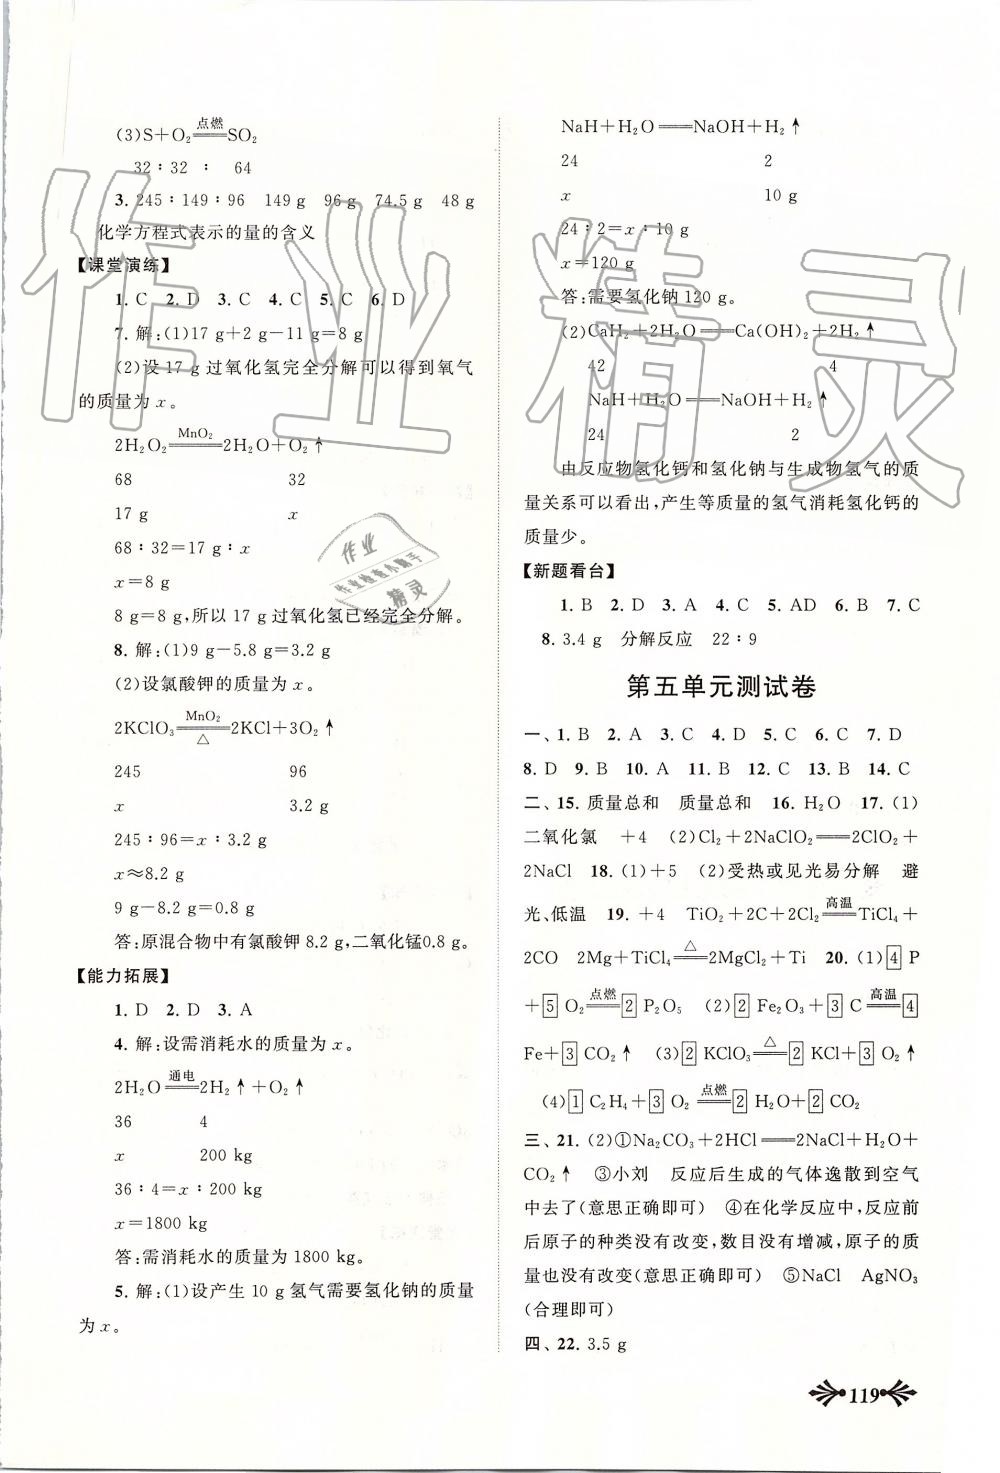 (3)S+O₂ ══点燃══ SO₂
32∶32 ∶ 64
3. 245∶149∶96 149 g 96 g 74.5 g 48 g
化学方程式表示的量的含义
【课堂演练】
1. C 2. D 3. C 4. C 5. C 6. D
7. 解:(1)17 g+2 g-11 g=8 g
(2)设 17 g 过氧化氢完全分解可以得到氧气
的质量为 x。
2H₂O₂ ══MnO₂══ 2H₂O+O₂↑
68 32
17 g x
68∶32=17 g∶x
x=8 g
8 g=8 g,所以 17 g 过氧化氢已经完全分解。
8. 解:(1)9 g-5.8 g=3.2 g
(2)设氯酸钾的质量为 x。
2KClO₃ ══MnO₂/△══ 2KCl+3O₂↑
245 96
x 3.2 g
245∶96=x∶3.2 g
x≈8.2 g
9 g-8.2 g=0.8 g
答:原混合物中有氯酸钾 8.2 g,二氧化锰0.8 g。
【能力拓展】
1. D 2. D 3. A
4. 解:设需消耗水的质量为 x。
2H₂O ══通电══ 2H₂↑+O₂↑
36 4
x 200 kg
36∶4=x∶200 kg
x=1800 kg
答:需消耗水的质量为 1800 kg。
5. 解:(1)设产生 10 g 氢气需要氢化钠的质量
为 x。
NaH+H₂O══NaOH+H₂↑
24 2
x 10 g
24∶2=x∶10 g
x=120 g
答:需要氢化钠 120 g。
(2)CaH₂+2H₂O══Ca(OH)₂+2H₂↑
42 4
NaH+H₂O══NaOH+H₂↑
24 2
由反应物氢化钙和氢化钠与生成物氢气的质
量关系可以看出,产生等质量的氢气消耗氢化钙的
质量少。
【新题看台】
1. B 2. D 3. A 4. C 5. AD 6. B 7. C
8. 3.4 g 分解反应 22∶9
第五单元测试卷
一、1. B 2. A 3. C 4. D 5. C 6. C 7. D
8. D 9. B 10. A 11. B 12. C 13. B 14. C
二、15. 质量总和 质量总和 16. H₂O 17. (1)
二氧化氯 +4 (2)Cl₂+2NaClO₂══2ClO₂+
2NaCl 18. (1)+5 (2)受热或见光易分解 避
光、低温 19. +4 TiO₂+2C+2Cl₂ ══高温══ TiCl₄+
2CO 2Mg+TiCl₄ ══△══ 2MgCl₂+Ti 20. (1)4 P
+5 O₂ ══点燃══ 2 P₂O₅ (2)2 Fe₂O₃+3 C ══高温══ 4
Fe+3 CO₂↑ (3)2 KClO₃ ══△══ 2 KCl+3 O₂↑
(4)1 C₂H₄+3 O₂ ══点燃══ 2 H₂O+2 CO₂
三、21. (2)①Na₂CO₃+2HCl══2NaCl+H₂O+
CO₂↑ ③小刘 反应后生成的气体逸散到空气
中去了(意思正确即可) ④在化学反应中,反应前
后原子的种类没有改变,数目没有增减,原子的质
量也没有改变(意思正确即可) ⑤NaCl AgNO₃
(合理即可)
四、22. 3.5 g
119
作业精灵
作业
作业检查小助手
精灵